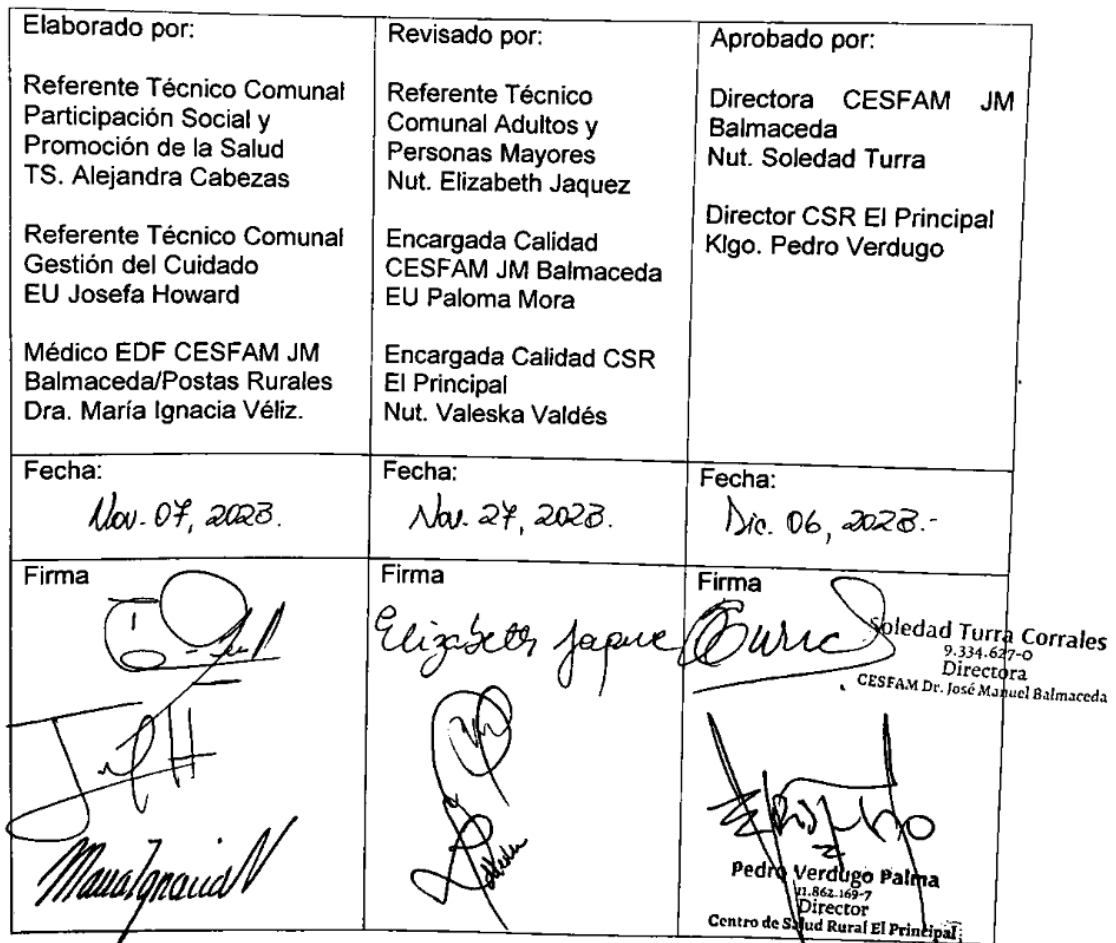 Elaborado por:
Referente Técnico Comunal
Participación Social y
Promoción de la Salud
TS. Alejandra Cabezas
Referente Técnico Comunal
Gestión del Cuidado
EU Josefa Howard
Médico EDF CESFAM JM
Balmaceda/Postas Rurales
Dra. María Ignacia Véliz.
Revisado por:
Referente Técnico
Comunal Adultos y
Personas Mayores
Nut. Elizabeth Jaquez
Encargada Calidad
CESFAM JM Balmaceda
EU Paloma Mora
Encargada Calidad CSR
El Principal
Nut. Valeska Valdés
Aprobado por:
Directora CESFAM JM
Balmaceda
Nut. Soledad Turra
Director CSR El Principal
Klgo. Pedro Verdugo
Fecha:
Nov. 07, 2023.
Fecha:
Nov. 27, 2023.
Fecha:
Dic. 06, 2023.-
Firma
Firma
Elizabeth
Firma
Soledad Turra Corrales
9.334.627-0
Directora
CESFAM Dr. José Manuel Balmaceda
Pedro Verdugo Palma
11.862.169-7
Director
Centro de Salud Rural El Principal